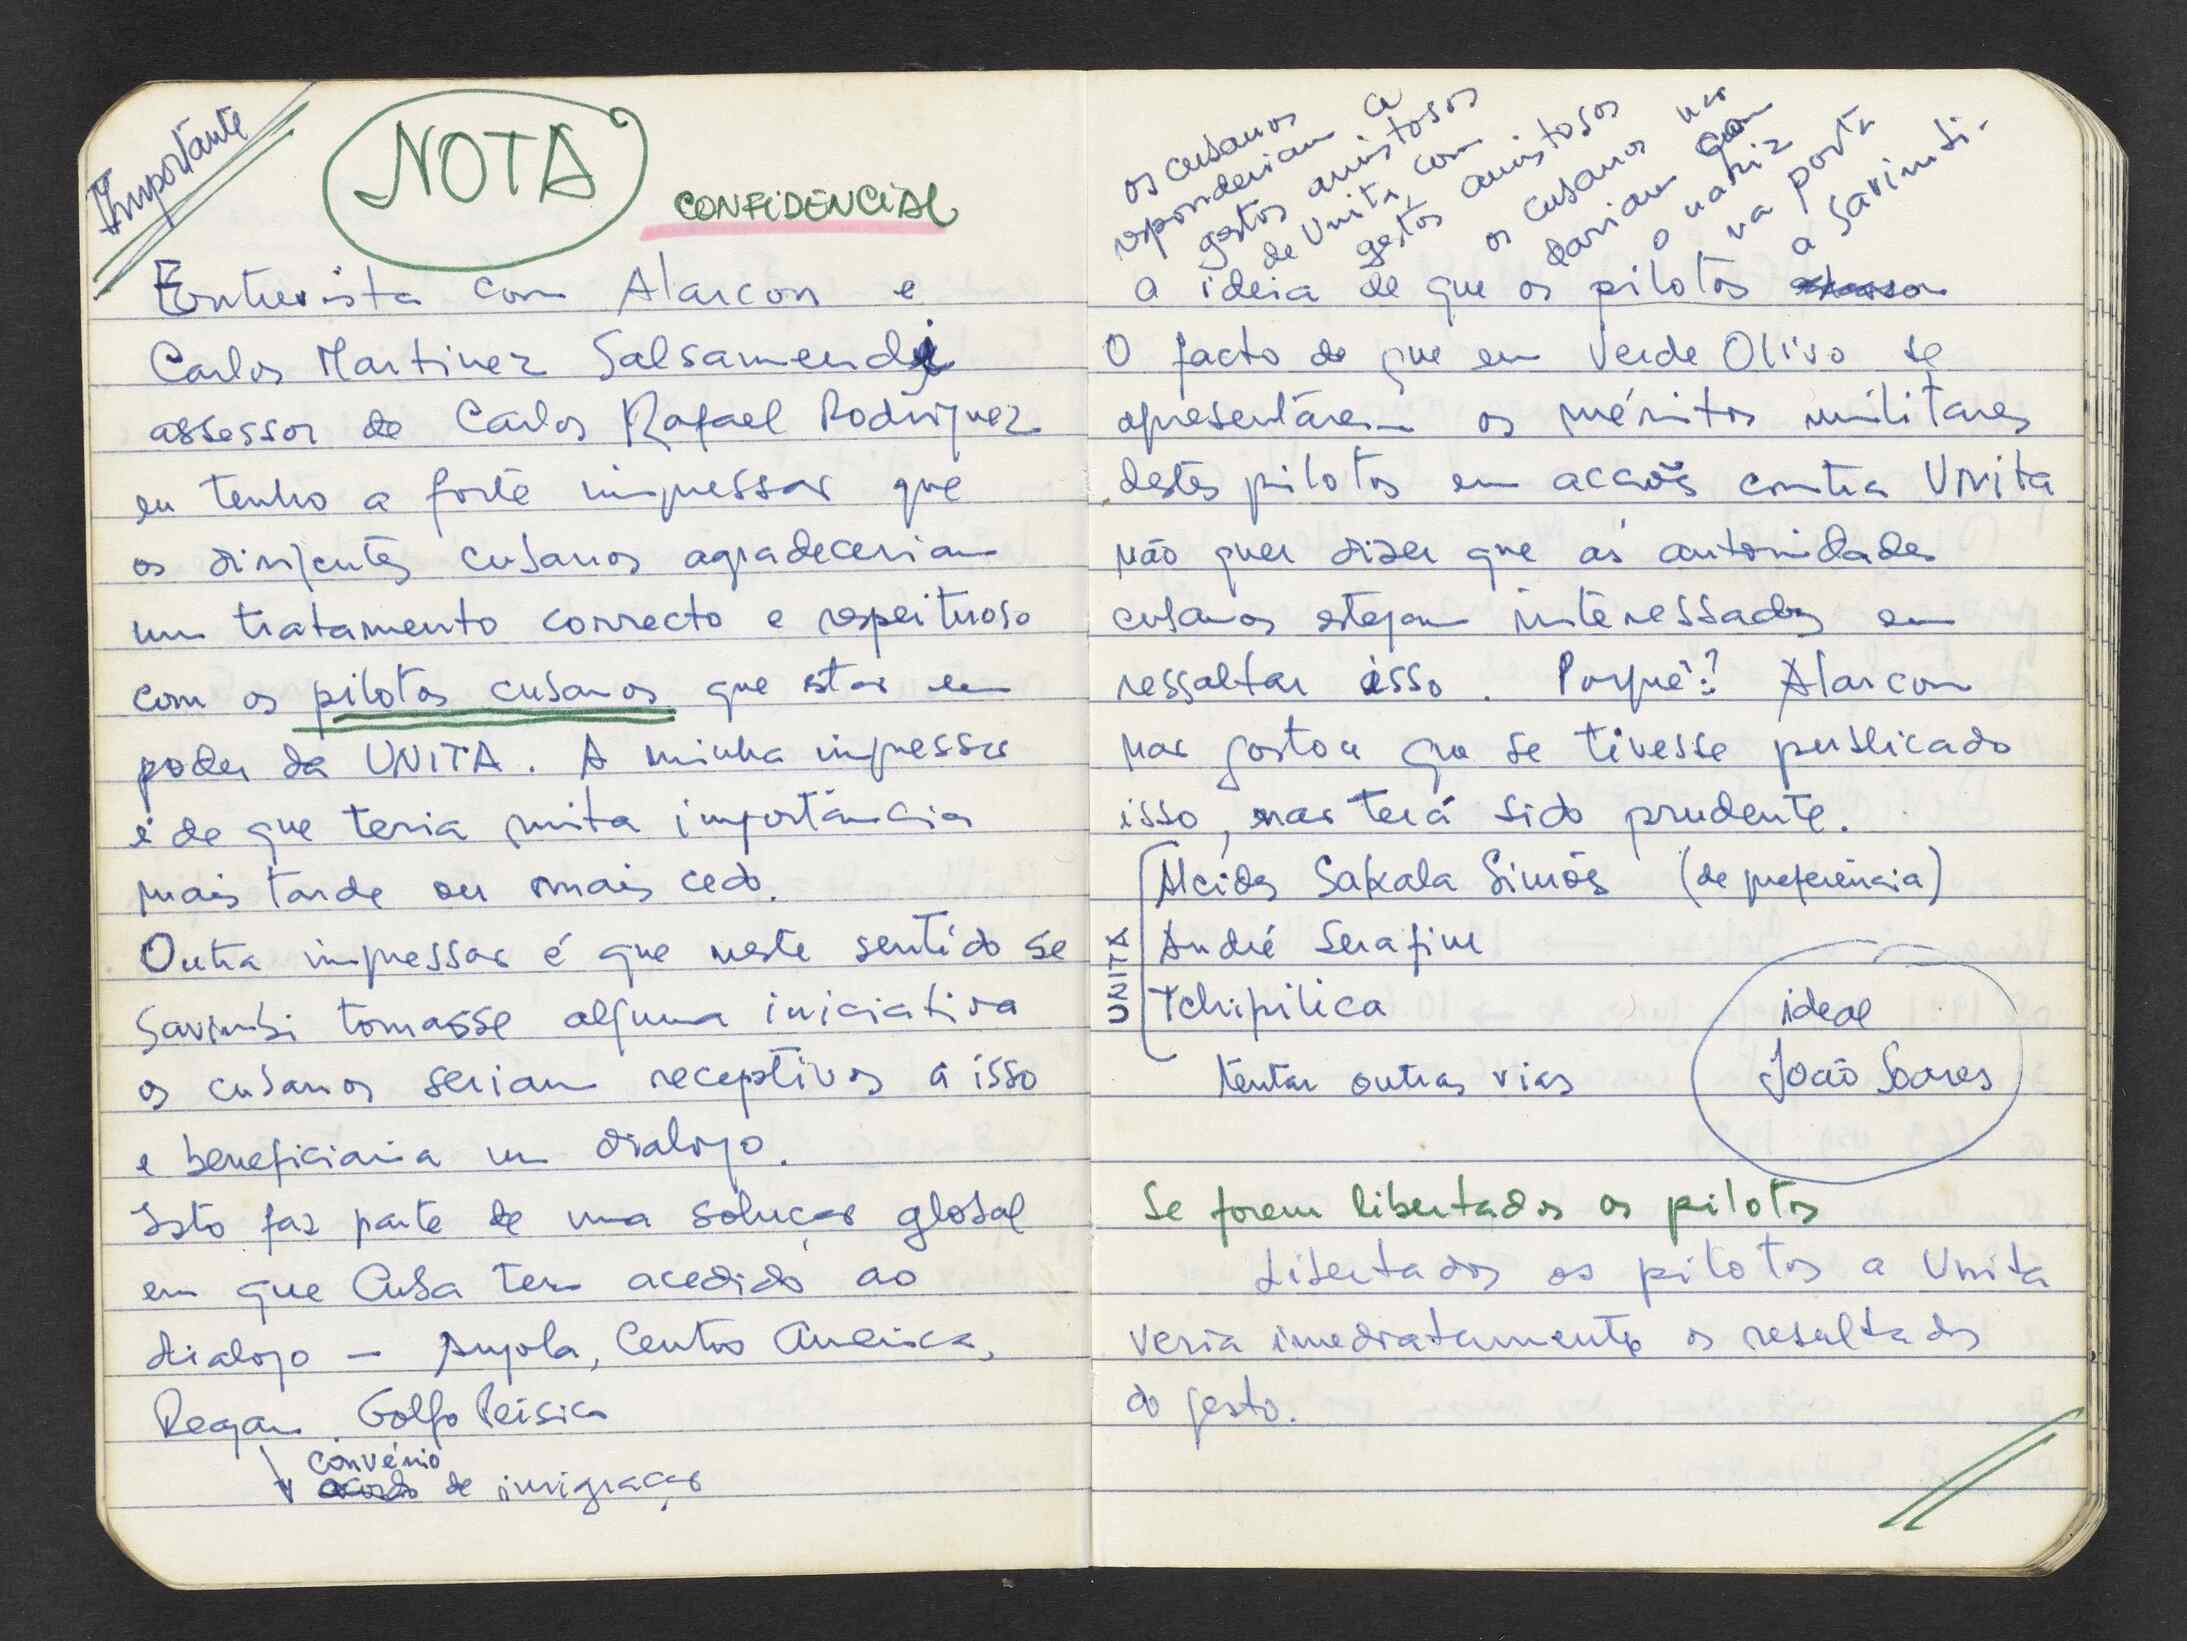 Importante
NOTA
CONFIDENCIAL
Entrevista com Alarcon e
Carlos Martinez Salsamendi
assessor de Carlos Rafael Rodriguez
eu tenho a forte impressao que
os dirigentes cubanos agradeceriam
um tratamento correcto e respeituoso
com os pilotos cubanos que estao em
poder da UNITA. A minha impressao
é de que teria muita importância
mais tarde ou mais cedo.
Outra impressao é que neste sentido se
Savimbi tomasse alguma iniciativa
os cubanos seriam receptivos a isso
e beneficiaria um dialogo.
Isto faz parte de uma soluçao global
em que Cuba tem acedido ao
dialogo – Angola, Centro America,
Reagan. Golfo Pérsico
convénio
acordo de imigraçao
os cubanos
responderiam a
gestos amistosos
de Unita, com
gestos amistosos
os cubanos nao
dariam com
o nariz
na porta
a Savimbi.
a ideia de que os pilotos
O facto de que em Verde Olivo se
apresentárem os méritos militares
destes pilotos em accoes contra Unita
não quer dizer que as autoridades
cubanas estejam interessadas em
ressaltar isso. Porquê? Alarcon
nao gostou que se tivesse publicado
isso, nao terá sido prudente.
UNITA
Alcides Sakala Simões (de preferência)
André Serafim
Tchipilica
tentar outras vias
ideal
João Soares
Se forem libertados os pilotos
Libertados os pilotos a Unita
veria imediatamente os resultados
do gesto.